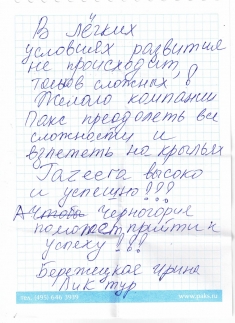 В лёгких
условиях развития
не происходит,
только в сложных!
Желаю компании
Пакс преодолеть все
сложности и
взлететь на крыльях
Гагеега высоко
и успешно!!!
А чтобы Черногория
поможет прийти к
успеху!!!
Бережецкая Ирина
Лик тур
тел. (495) 646 3939
www.paks.ru